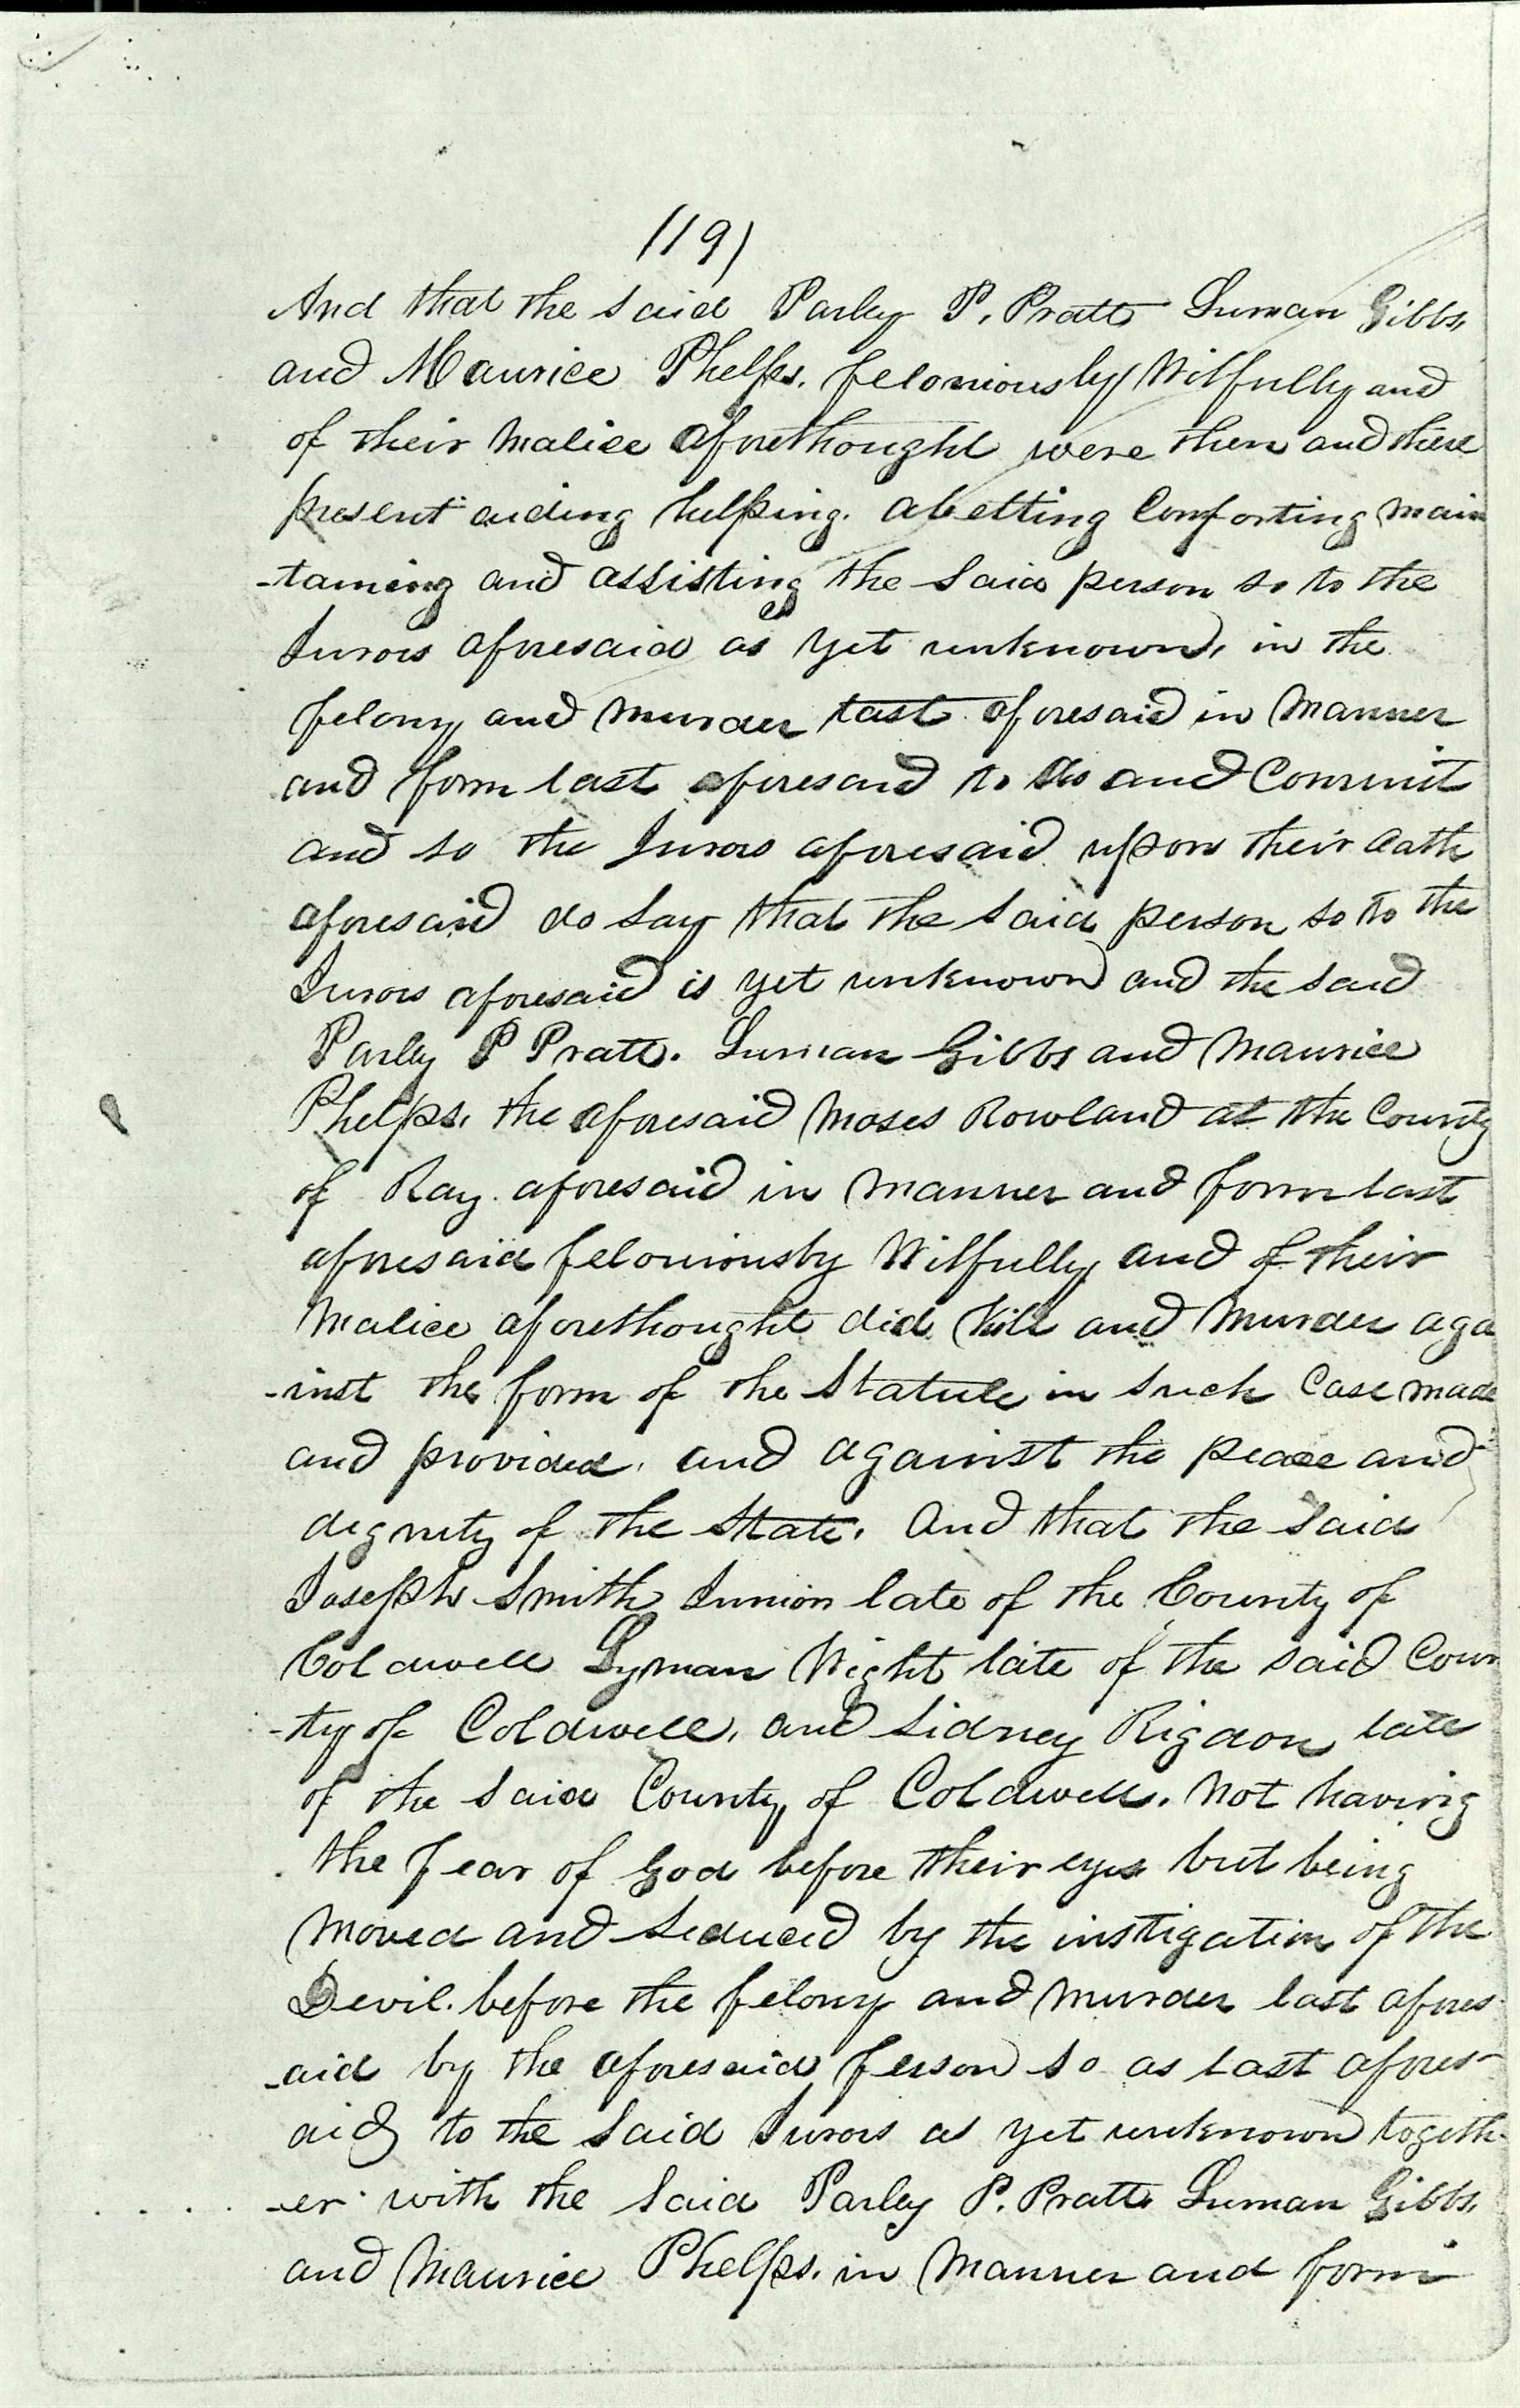 (19)
And that the said Parley P. Pratt Luman Gibbs,
and Maurice Phelps. feloniously Wilfully and
of their Malice aforethought were then and there
present aiding helping. abetting Comforting main
-taining and assisting the said person so to the
Jurors aforesaid as yet unknown, in the
felony and murder last aforesaid in Manner
and form last aforesaid to do and Commit
and so the Jurors aforesaid upon their Oath
aforesaid do say that the said person so to the
Jurors aforesaid is yet unknown and the said
Parley P Pratt. Luman Gibbs and Maurice
Phelps, the aforesaid Moses Rowland at the County
of Ray. aforesaid in manner and form last
aforesaid feloniously Wilfully and of their
Malice aforethought did kill and Murder aga
-inst the form of the Statute in such Case made
and provided, and against the peace and
dignity of the State. And that the said
Joseph Smith Junior late of the County of
Coldwell Lyman Wight late of the said Coun
-ty of Coldwell, and Sidney Rigdon late
of the said County of Coldwell. not having
the fear of God before their eyes but being
Moved and seduced by the instigation of the
Devil. before the felony and murder last afores-
-aid by the aforesaid person so as last afores-
aid to the said Jurors as yet unknown togeth-
-er with the said Parley P. Pratt Luman Gibbs,
and Maurice Phelps. in Manner and form